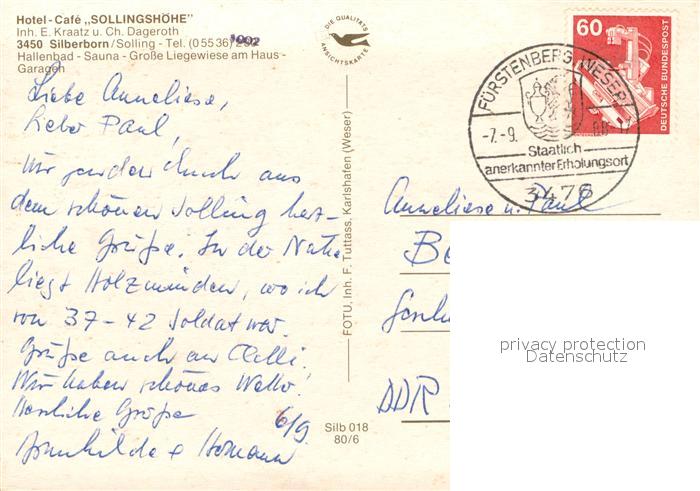 Hotel-Café „SOLLINGSHÖHE"
Inh. E. Kraatz u. Ch. Dageroth
3450 Silberborn/Solling - Tel. (05536) 1002
Hallenbad - Sauna - Große Liegewiese am Haus -
Garagen
DIE QUALITÄTS
ANSICHTSKARTE
60
DEUTSCHE BUNDESPOST
FÜRSTENBERG, WESER
-7.-9.
Staatlich
anerkannter Erholungsort
3476
Liebe Anneliese,
Lieber Paul,
wir senden Euch aus
dem schönen Solling herz-
liche Grüße. In der Nähe
liegt Holzminden, wo ich
von 37-42 Soldat war.
Grüße auch an
Wir haben schönes Wetter!
Herzliche Grüße
6/9.
FOTU, Inh. F. Tuttass, Karlshafen (Weser)
Silb 018
80/6
Anneliese u. Paul
DDR
privacy protection
Datenschutz